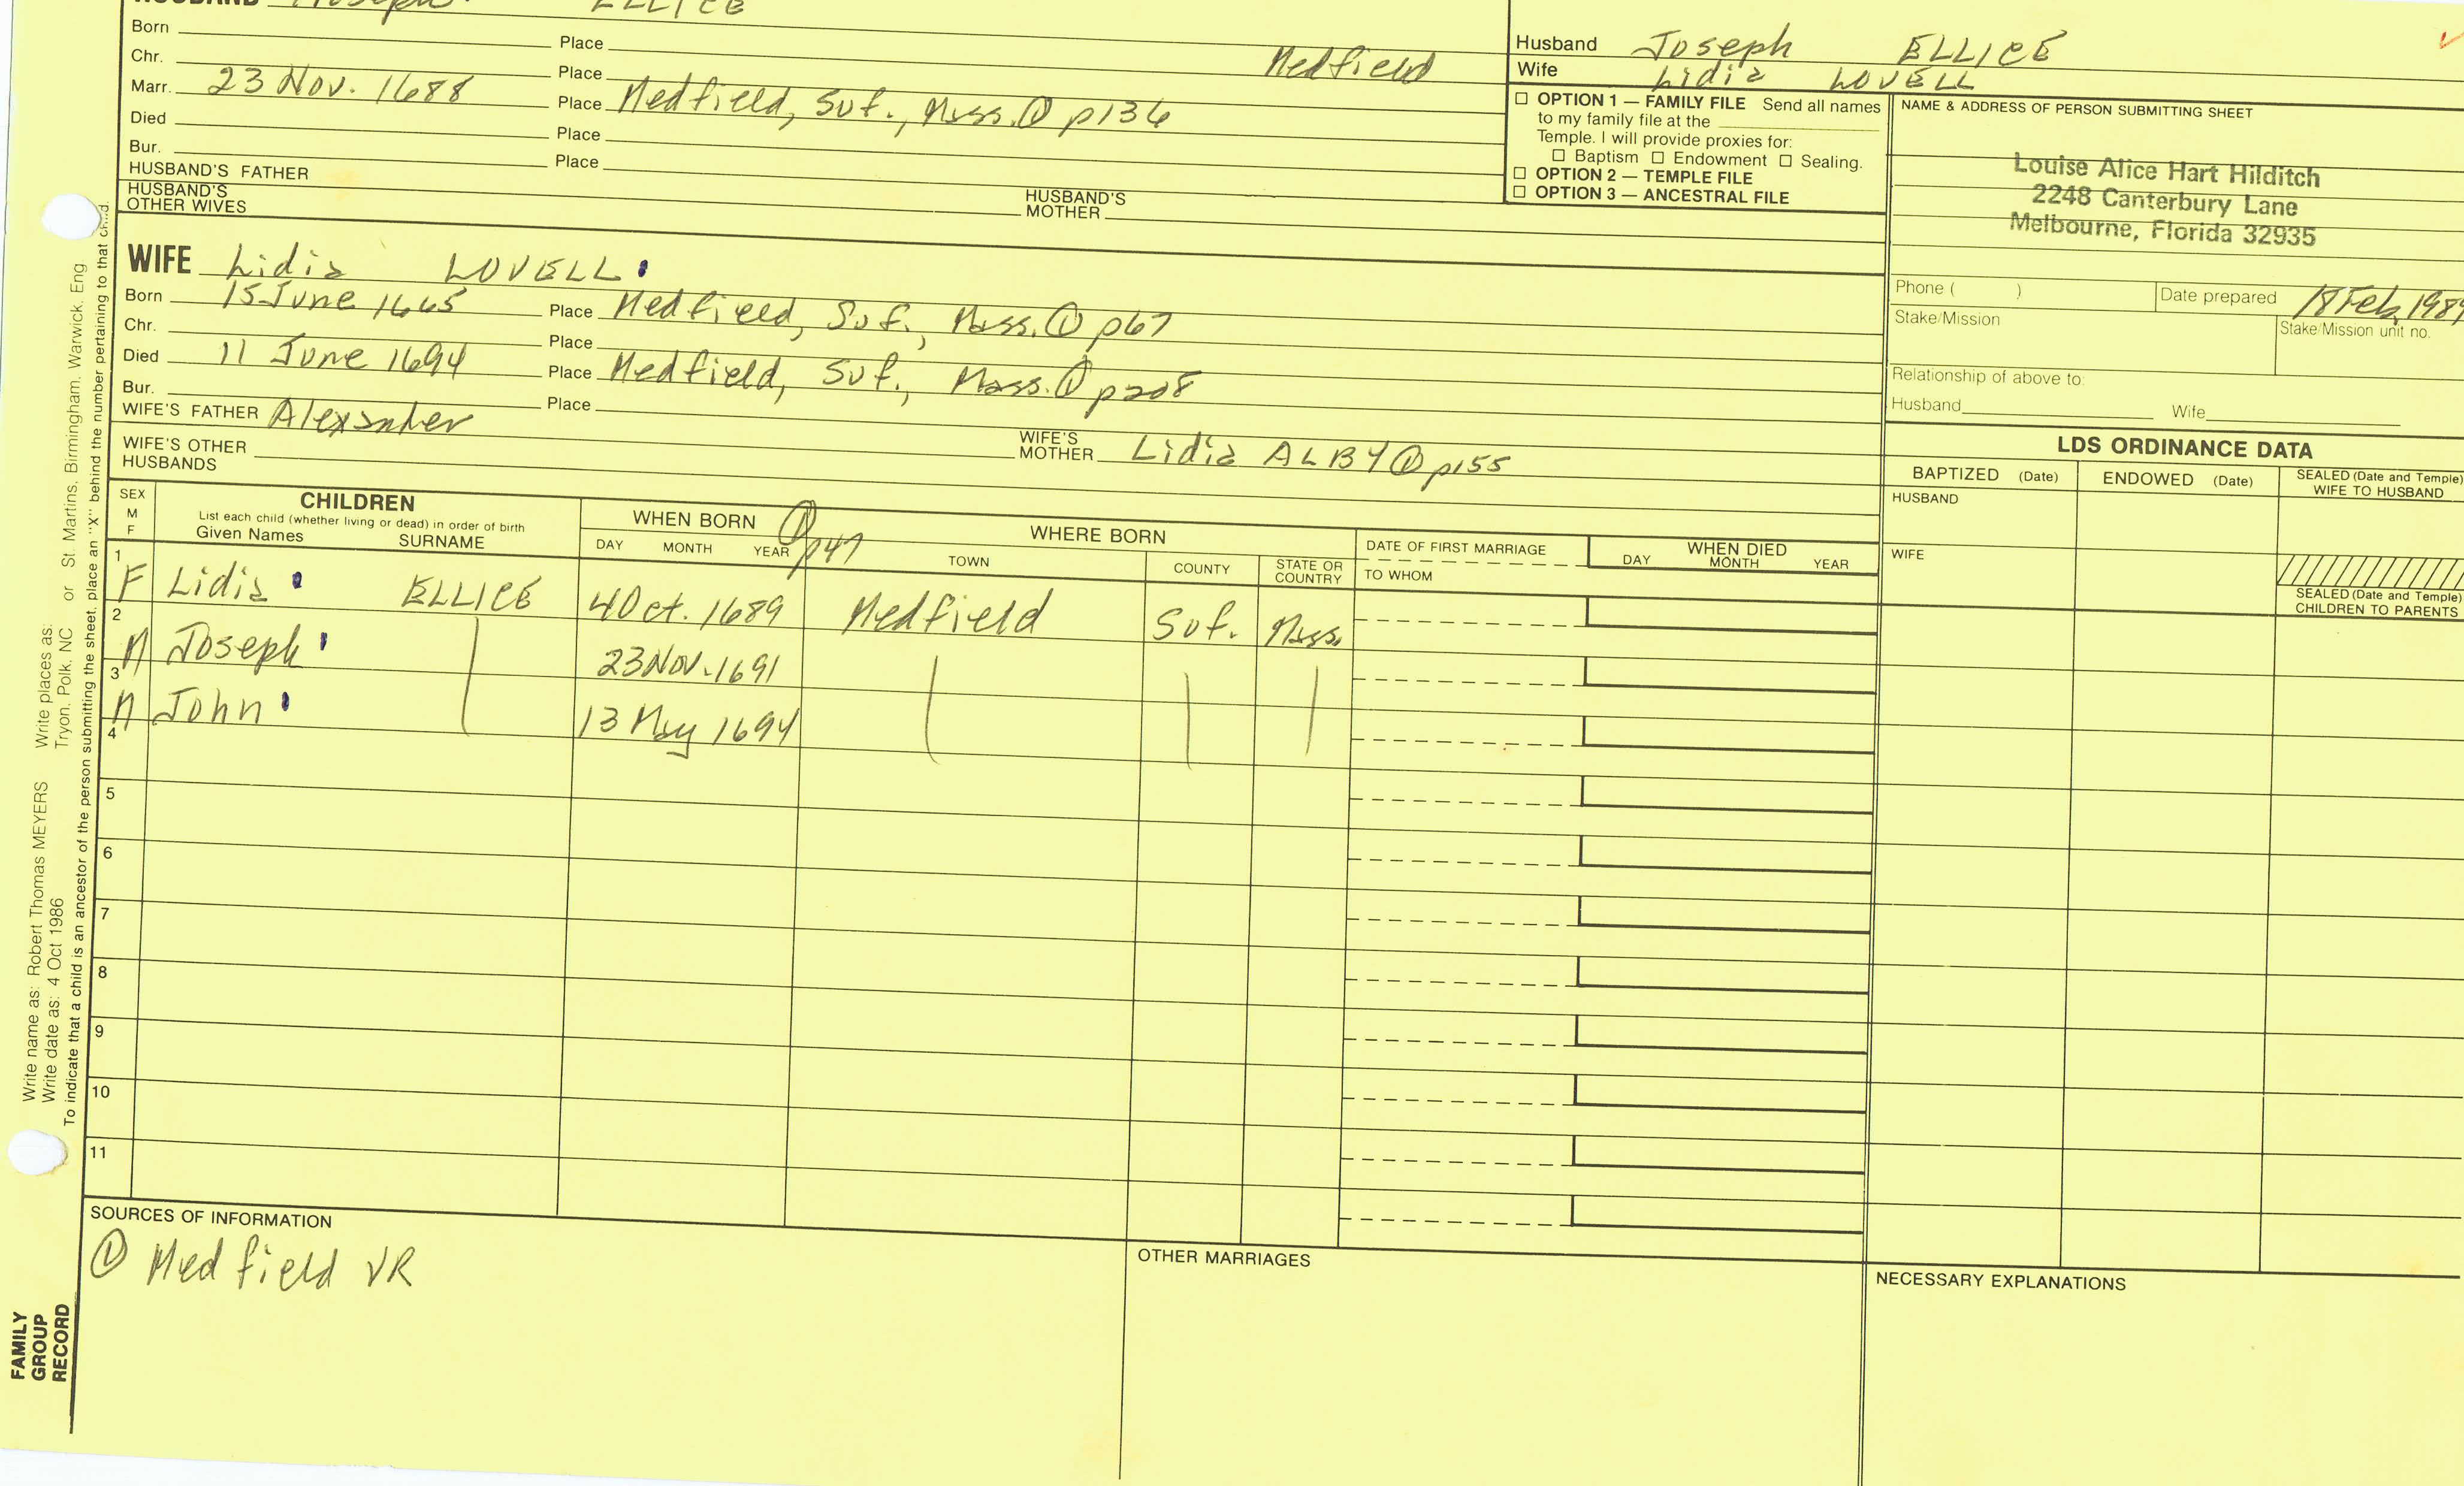 HUSBAND Joseph ELLICE
Born Place
Chr. Place Medfield
Marr. 23 Nov. 1688 Place Medfield, Suf., Mass. ① p136
Died Place
Bur. Place
HUSBAND'S FATHER
HUSBAND'S MOTHER
HUSBAND'S OTHER WIVES
WIFE Lidia LOVELL
Born 15 June 1665 Place Medfield, Suf., Mass. ① p67
Chr. Place
Died 11 June 1694 Place Medfield, Suf., Mass. ① p208
Bur. Place
WIFE'S FATHER Alexander
WIFE'S MOTHER Lidia ALBY ① p155
WIFE'S OTHER HUSBANDS
Husband Joseph ELLICE
Wife Lidia LOVELL
☐ OPTION 1 — FAMILY FILE Send all names
to my family file at the
Temple. I will provide proxies for:
☐ Baptism ☐ Endowment ☐ Sealing.
☐ OPTION 2 — TEMPLE FILE
☐ OPTION 3 — ANCESTRAL FILE
NAME & ADDRESS OF PERSON SUBMITTING SHEET
Louise Alice Hart Hilditch
2248 Canterbury Lane
Melbourne, Florida 32935
Phone ( )
Date prepared 18 Feb. 1989
Stake/Mission
Stake/Mission unit no.
Relationship of above to:
Husband Wife
LDS ORDINANCE DATA
BAPTIZED (Date) ENDOWED (Date) SEALED (Date and Temple)
WIFE TO HUSBAND
HUSBAND
WIFE
SEALED (Date and Temple)
CHILDREN TO PARENTS
SEX
M
F
CHILDREN
List each child (whether living or dead) in order of birth
Given Names SURNAME
WHEN BORN ① p47
DAY MONTH YEAR
WHERE BORN
TOWN COUNTY STATE OR COUNTRY
DATE OF FIRST MARRIAGE
TO WHOM
WHEN DIED
DAY MONTH YEAR
1 F Lidia ELLICE 4 Oct. 1689 Medfield Suf. Mass.
2 M Joseph 23 Nov. 1691
3 M John 13 May 1694
4
5
6
7
8
9
10
11
SOURCES OF INFORMATION
① Medfield VR
OTHER MARRIAGES
NECESSARY EXPLANATIONS
FAMILY
GROUP
RECORD
Write name as: Robert Thomas MEYERS Write places as: St. Martins, Birmingham, Warwick, Eng
Write date as: 4 Oct 1986 Tryon, Polk, NC or
To indicate that a child is an ancestor of the person submitting the sheet, place an "X" behind the number pertaining to that child.